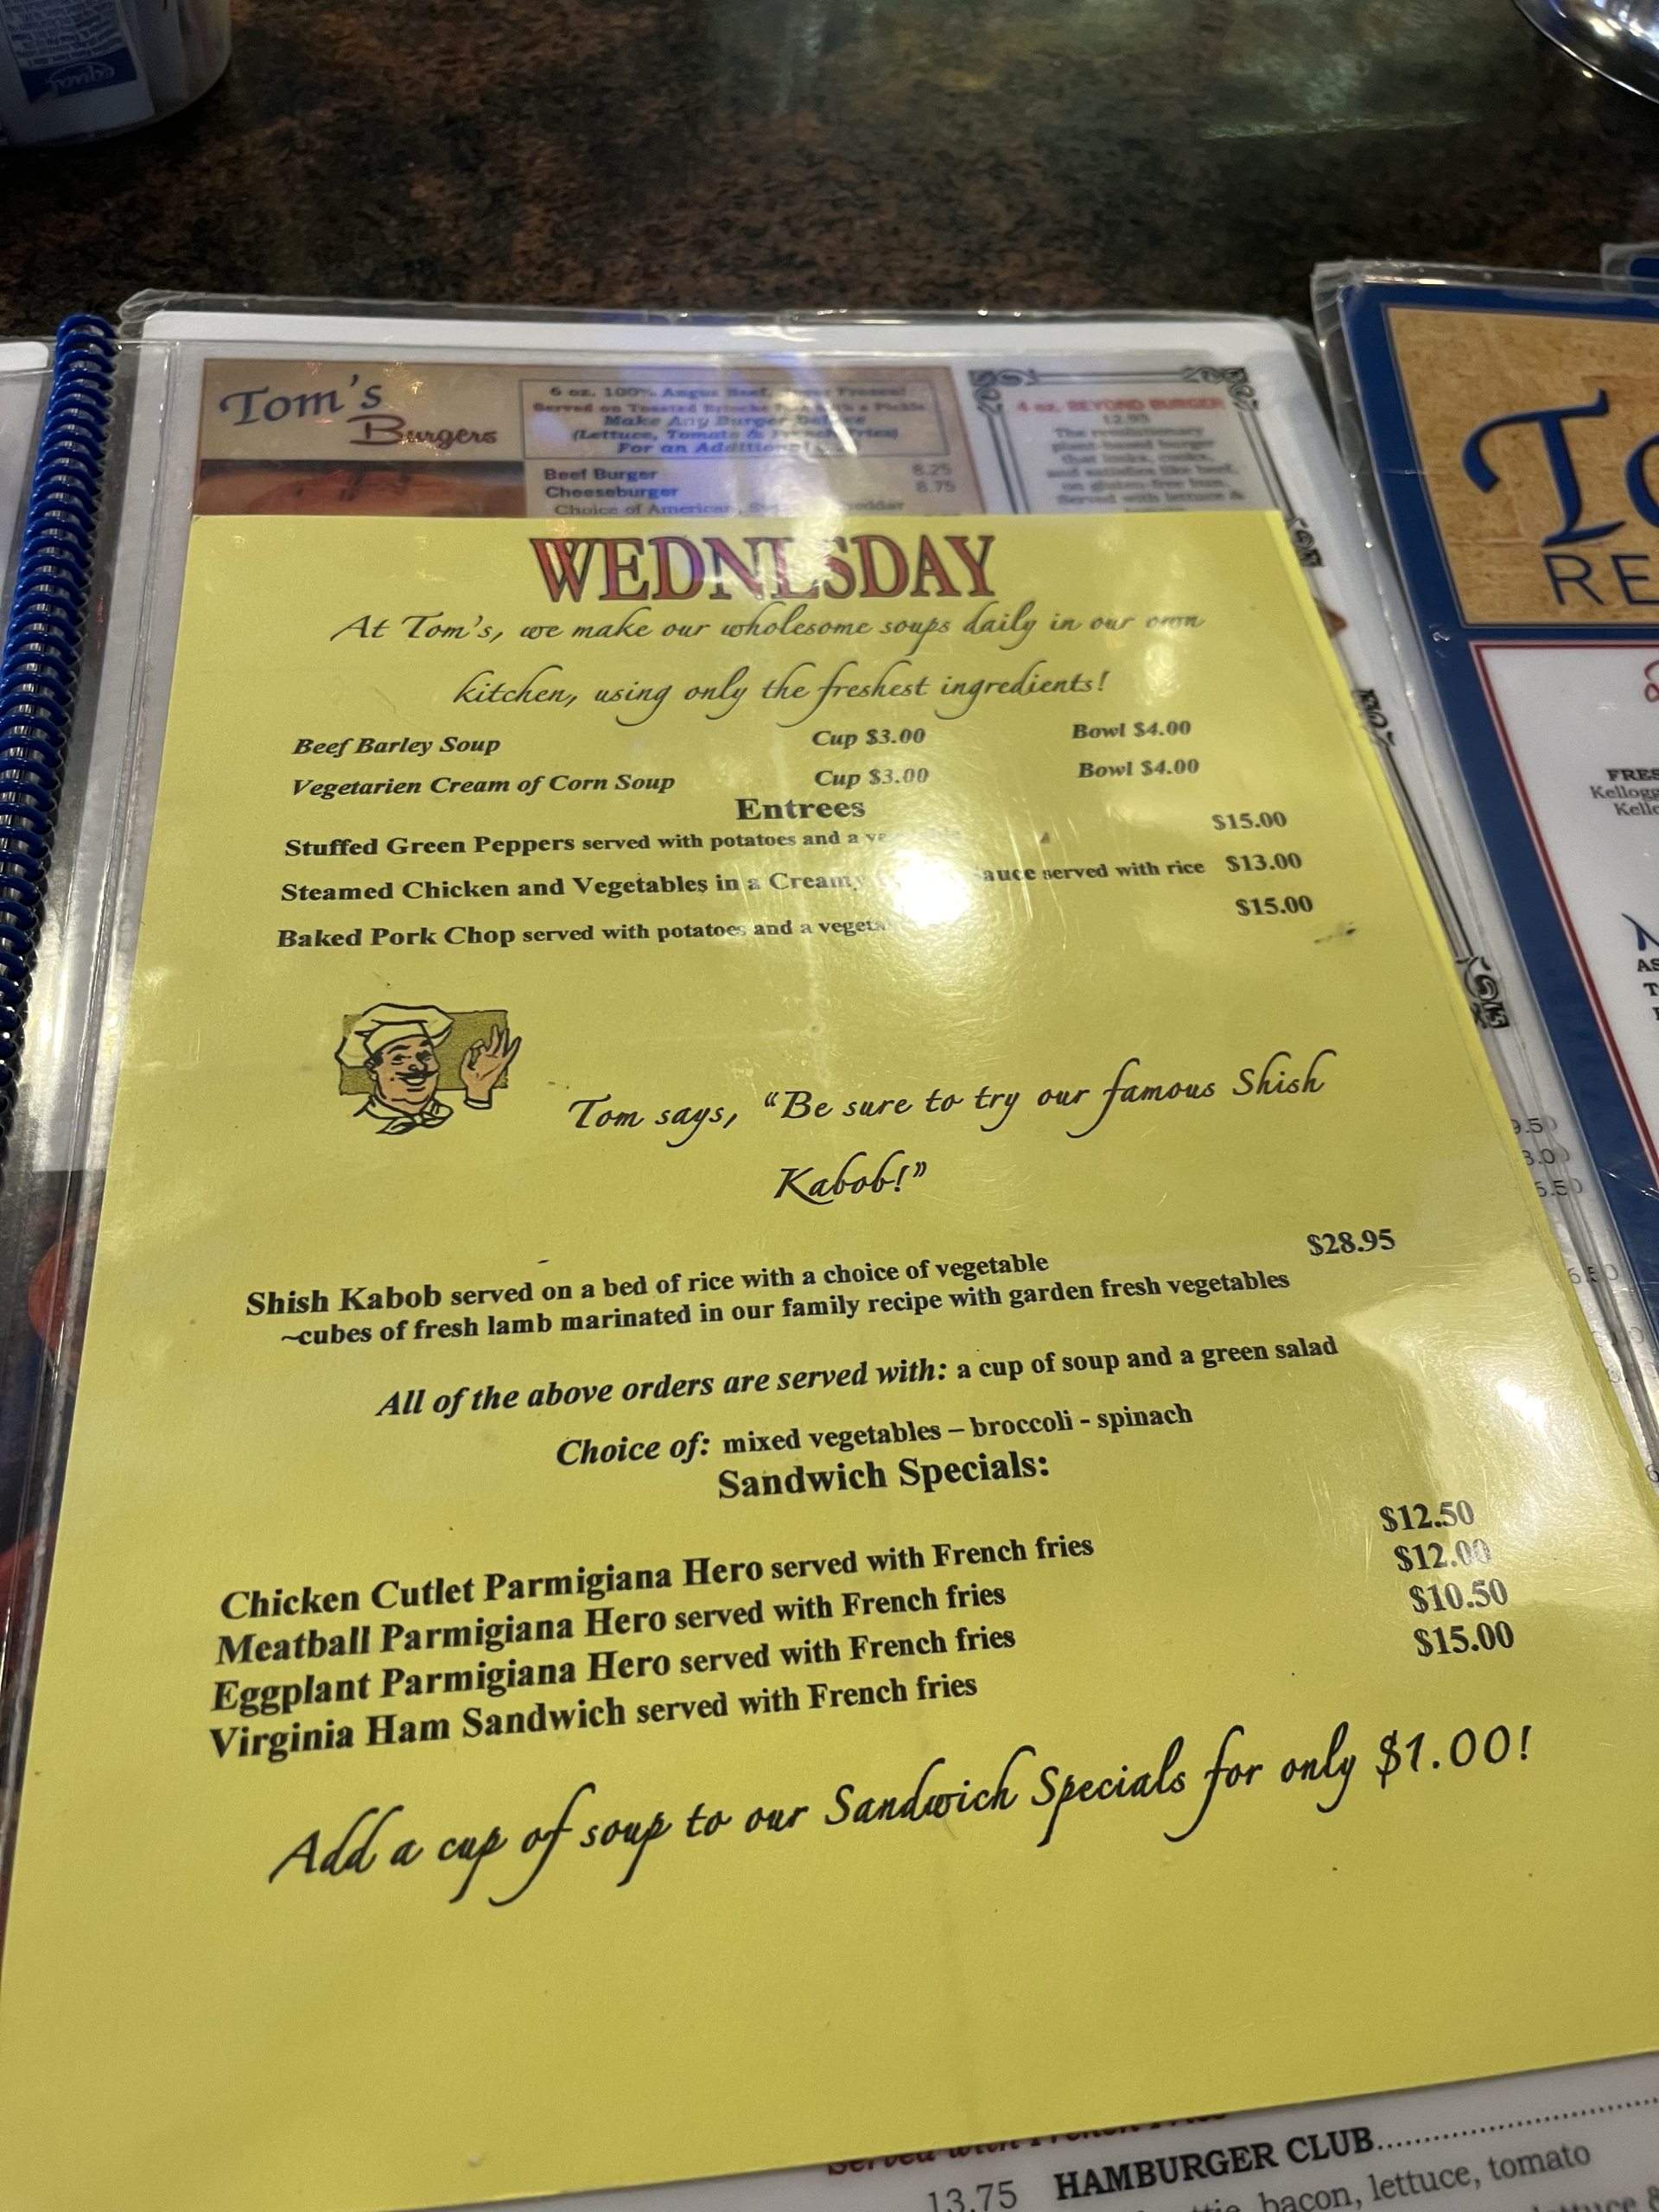 equal
Tom's
Burgers
6 oz. 100% Angus Beef, Frozen!
Served on Toasted Brioche with a Pickle
Make Any Burger Deluxe
(Lettuce, Tomato & French Fries)
For an Additional
Beef Burger 8.25
Cheeseburger 8.75
Choice of American,
4 oz. BEYOND BURGER
12.95
The revolutionary
plant-based burger
that looks, cooks,
and satisfies like beef,
on gluten-free bun.
Served with lettuce &
WEDNESDAY
At Tom's, we make our wholesome soups daily in our own
kitchen, using only the freshest ingredients!
Beef Barley Soup Cup $3.00 Bowl $4.00
Vegetarien Cream of Corn Soup Cup $3.00 Bowl $4.00
Entrees
Stuffed Green Peppers served with potatoes and a $15.00
Steamed Chicken and Vegetables in a Creamy served with rice $13.00
Baked Pork Chop served with potatoes and a $15.00
Tom says, “Be sure to try our famous Shish
Kabob!”
Shish Kabob served on a bed of rice with a choice of vegetable $28.95
~cubes of fresh lamb marinated in our family recipe with garden fresh vegetables
All of the above orders are served with: a cup of soup and a green salad
Choice of: mixed vegetables – broccoli - spinach
Sandwich Specials:
Chicken Cutlet Parmigiana Hero served with French fries $12.50
Meatball Parmigiana Hero served with French fries $12.00
Eggplant Parmigiana Hero served with French fries $10.50
Virginia Ham Sandwich served with French fries $15.00
Add a cup of soup to our Sandwich Specials for only $1.00!
Served with French Fries
13.75 HAMBURGER CLUB
bacon, lettuce, tomato